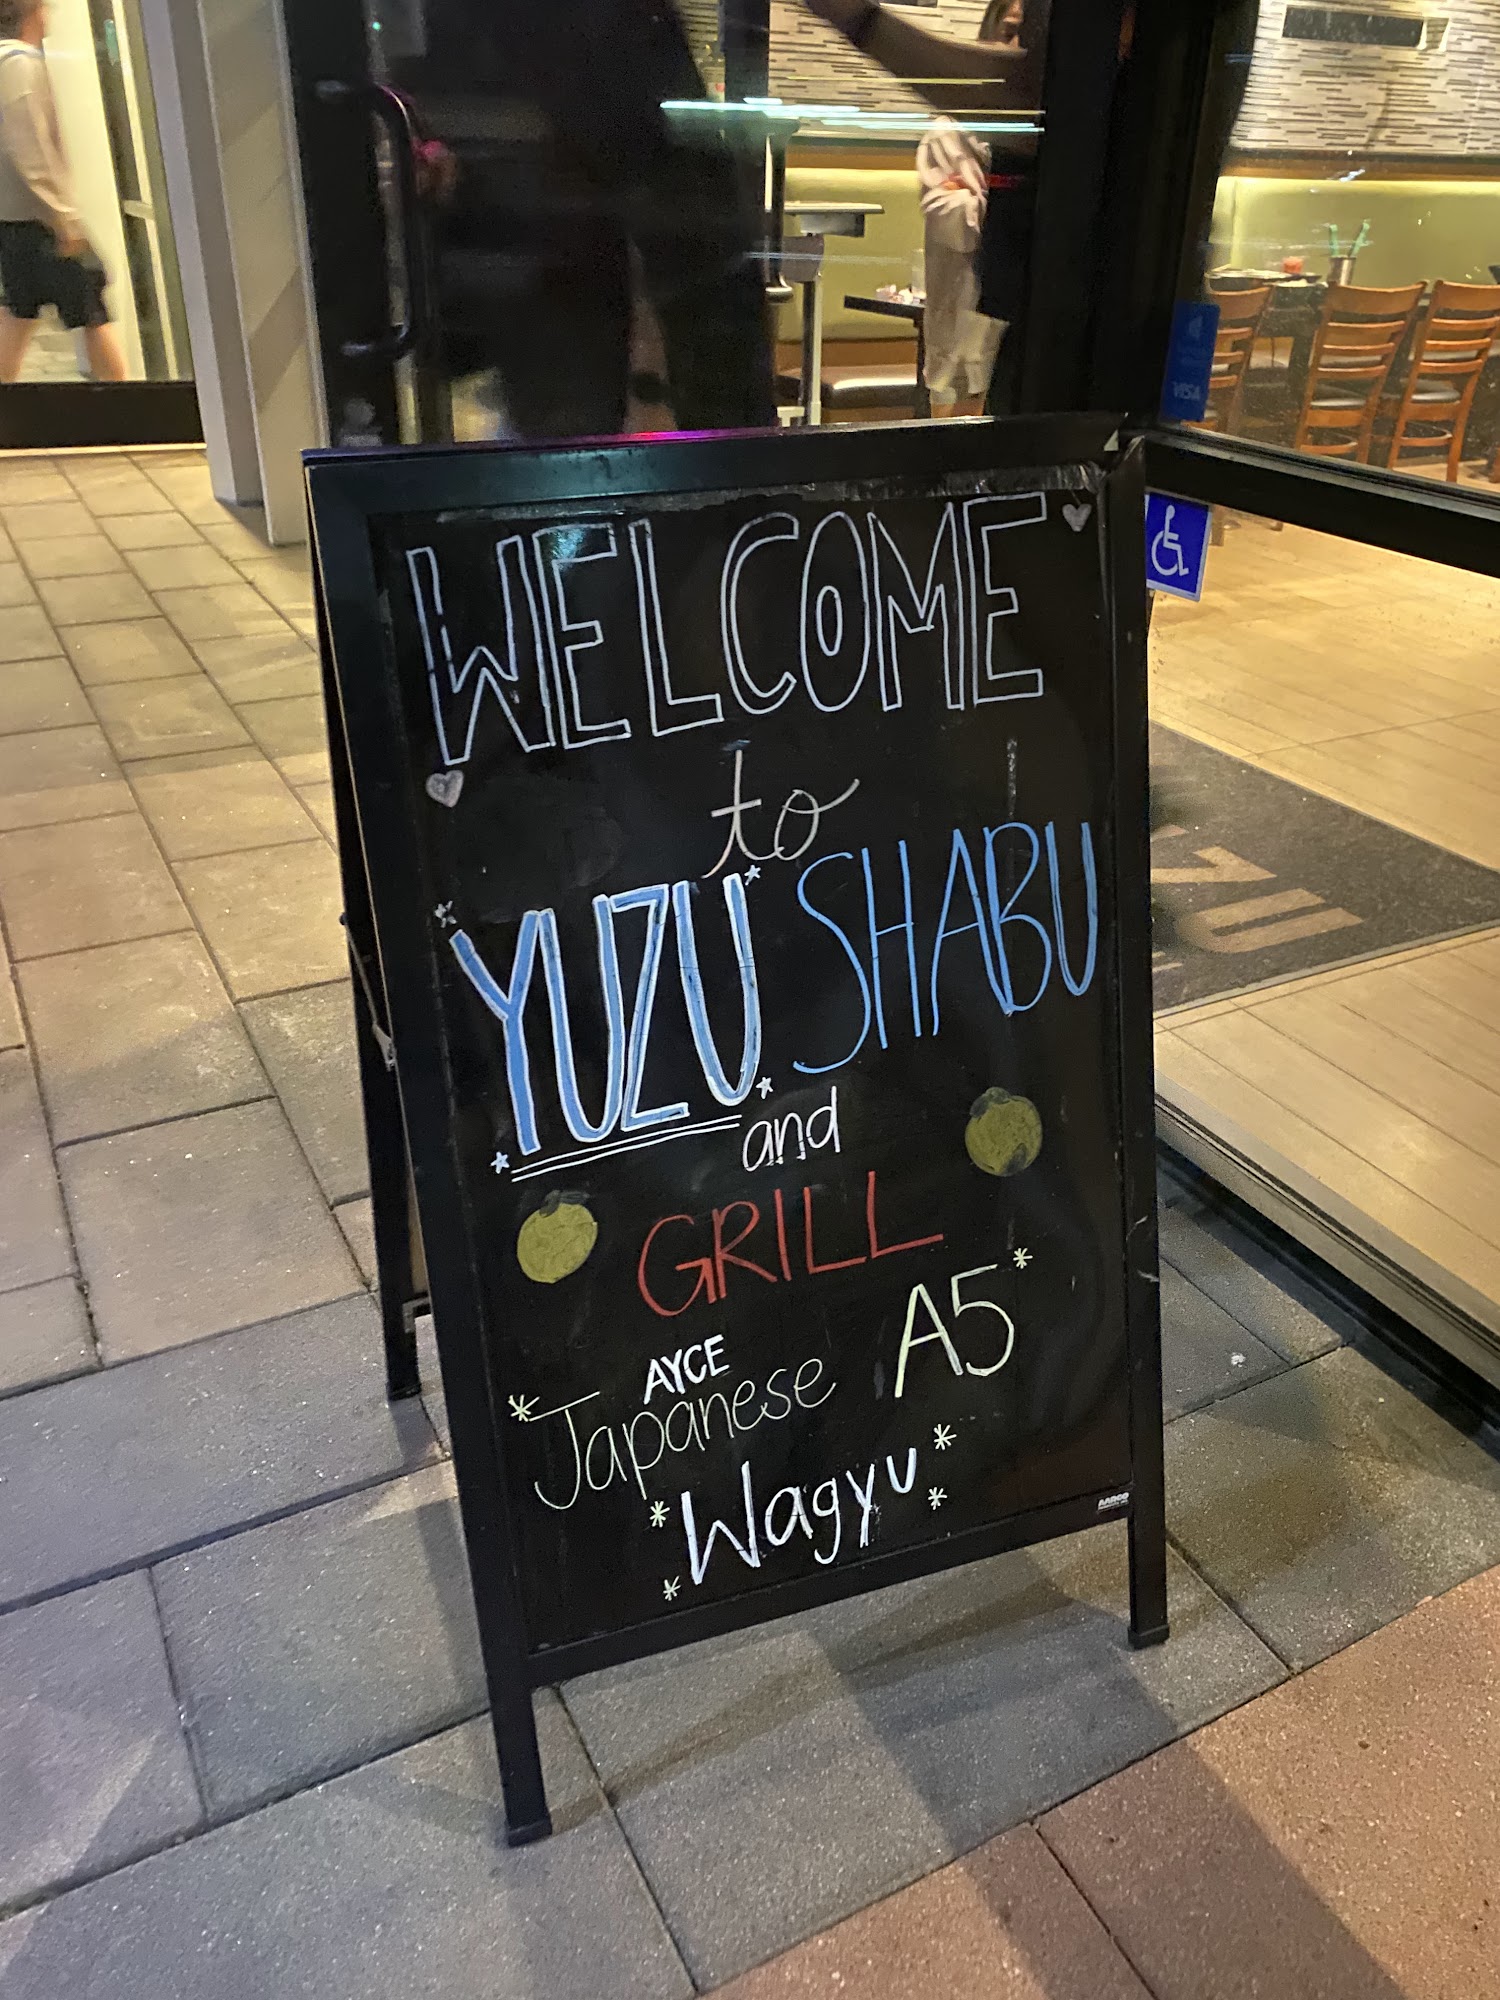 WELCOME
to
YUZU SHABU
and
GRILL
AYCE
Japanese A5
Wagyu
VISA
YUZU